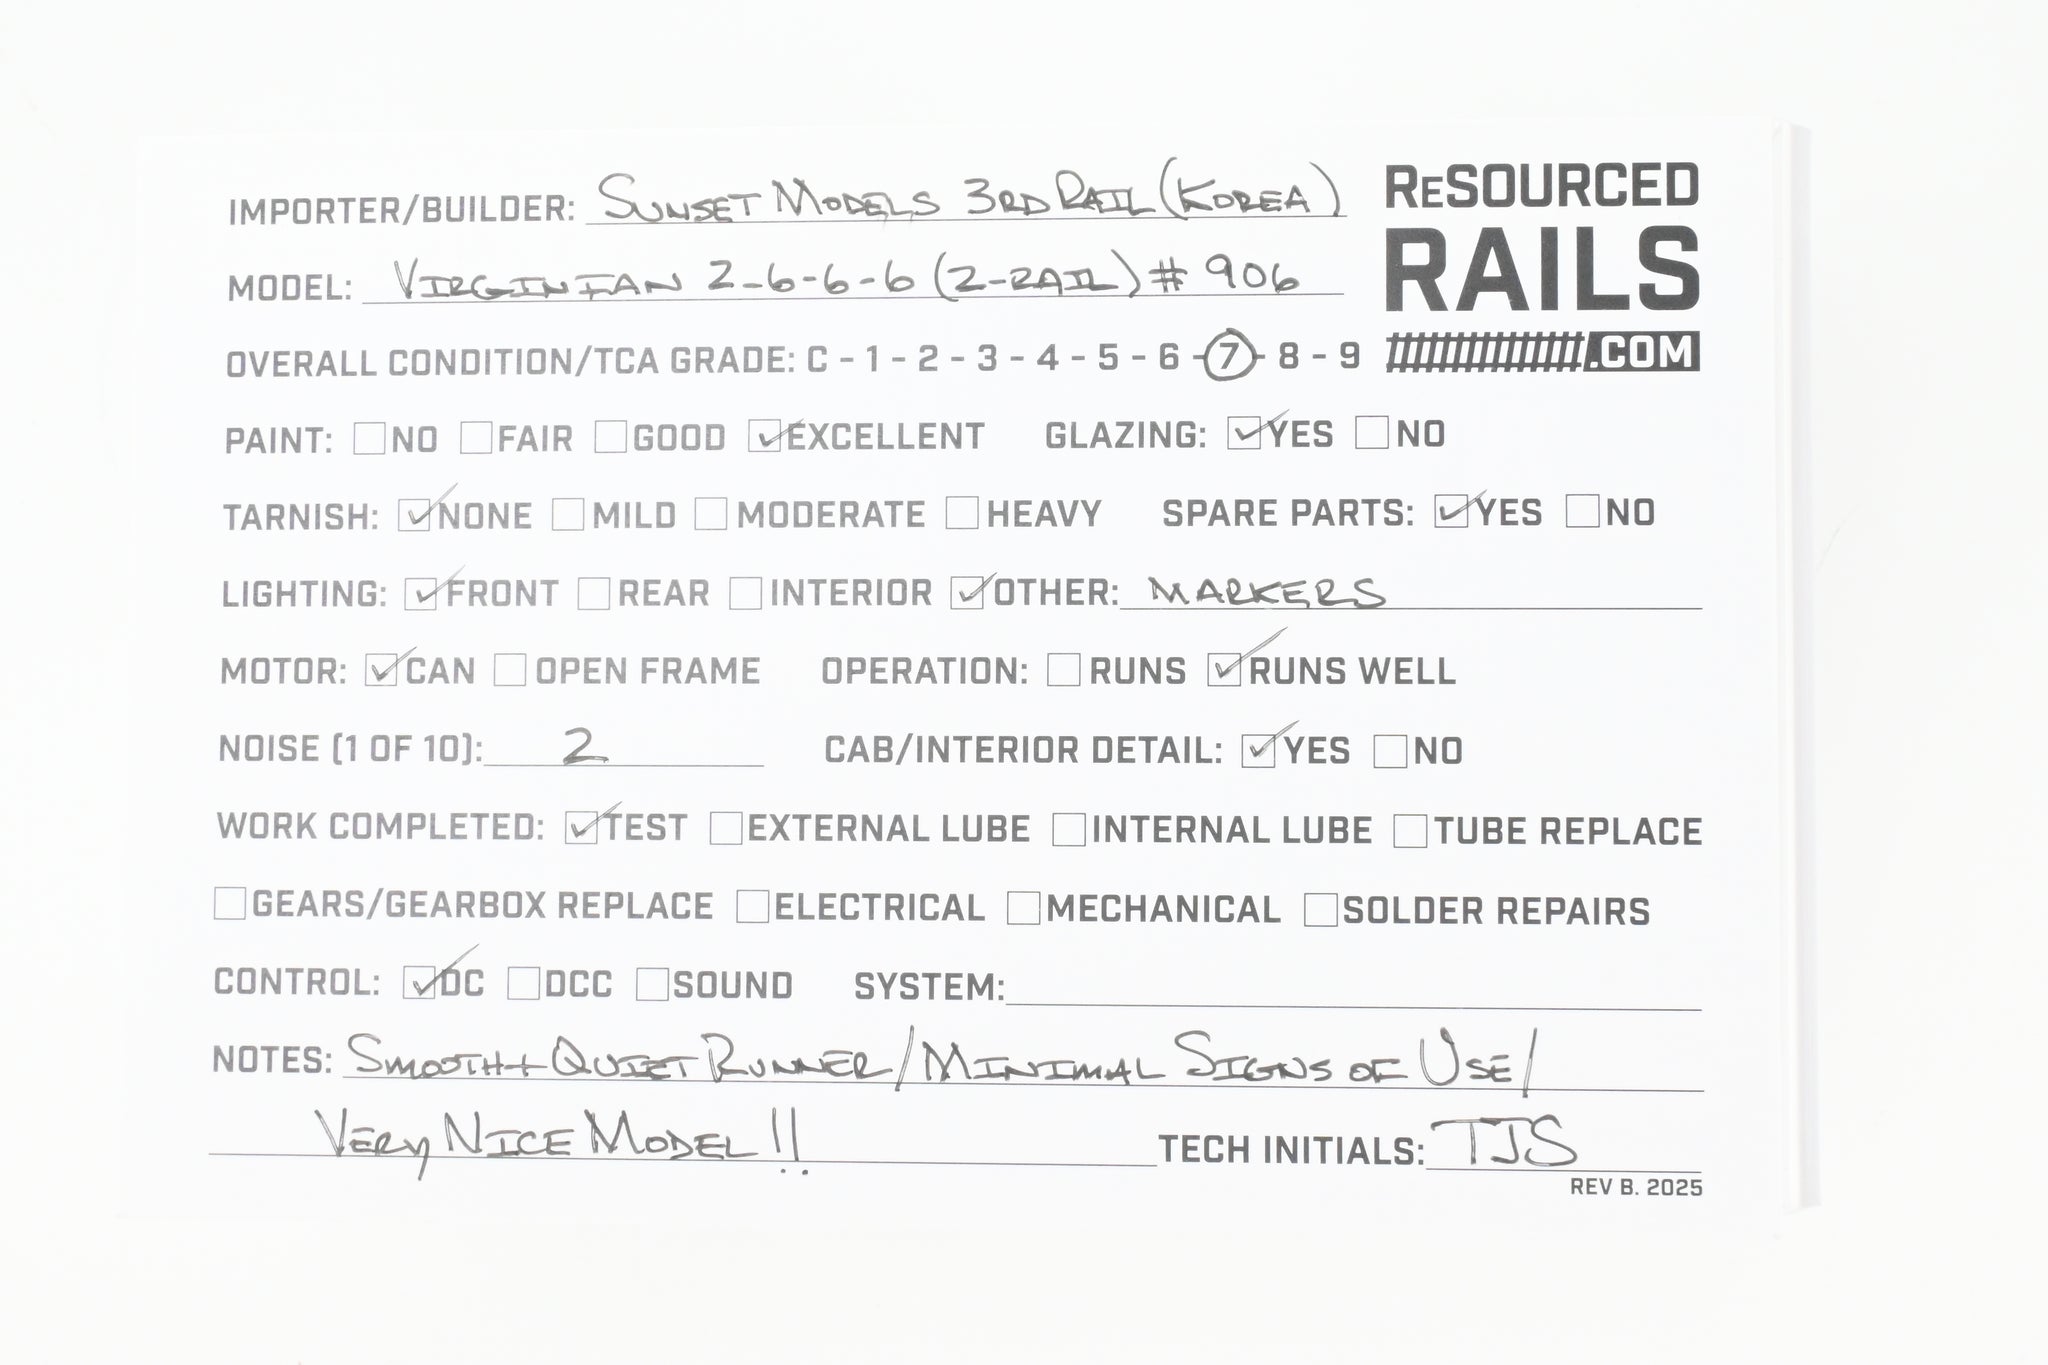 IMPORTER/BUILDER: SUNSET MODELS 3RD RAIL (KOREA)
ReSOURCED
RAILS
.COM
MODEL: VIRGINIAN 2-6-6-6 (2-RAIL) # 906
OVERALL CONDITION/TCA GRADE: C - 1 - 2 - 3 - 4 - 5 - 6 - 7 - 8 - 9
PAINT: NO FAIR GOOD EXCELLENT GLAZING: YES NO
TARNISH: NONE MILD MODERATE HEAVY SPARE PARTS: YES NO
LIGHTING: FRONT REAR INTERIOR OTHER: MARKERS
MOTOR: CAN OPEN FRAME OPERATION: RUNS RUNS WELL
NOISE (1 OF 10): 2 CAB/INTERIOR DETAIL: YES NO
WORK COMPLETED: TEST EXTERNAL LUBE INTERNAL LUBE TUBE REPLACE
GEARS/GEARBOX REPLACE ELECTRICAL MECHANICAL SOLDER REPAIRS
CONTROL: DC DCC SOUND SYSTEM:
NOTES: SMOOTH + QUIET RUNNER / MINIMAL SIGNS OF USE /
VERY NICE MODEL !! TECH INITIALS: TJS
REV B. 2025